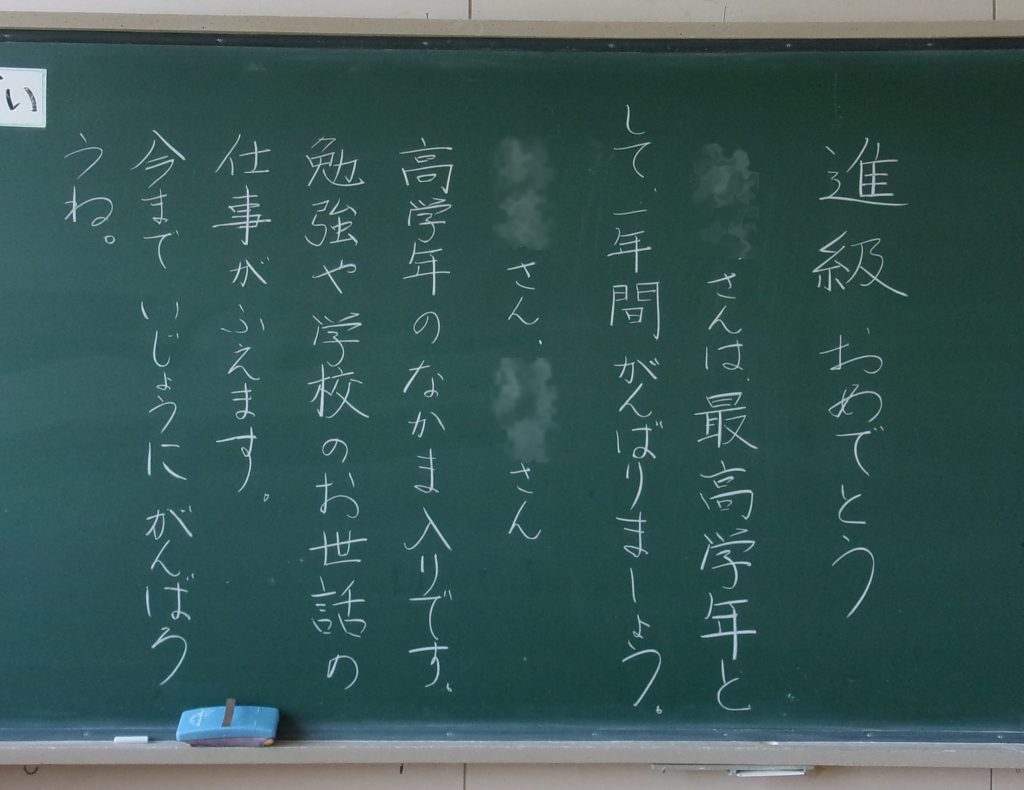 進級 おめでとう
さんは、最高学年と
して、一年間がんばりましょう。
さん、さん
高学年のなかま入りです。
勉強や学校のお世話の
仕事がふえます。
今まで いじょうに がんばろ
うね。
い